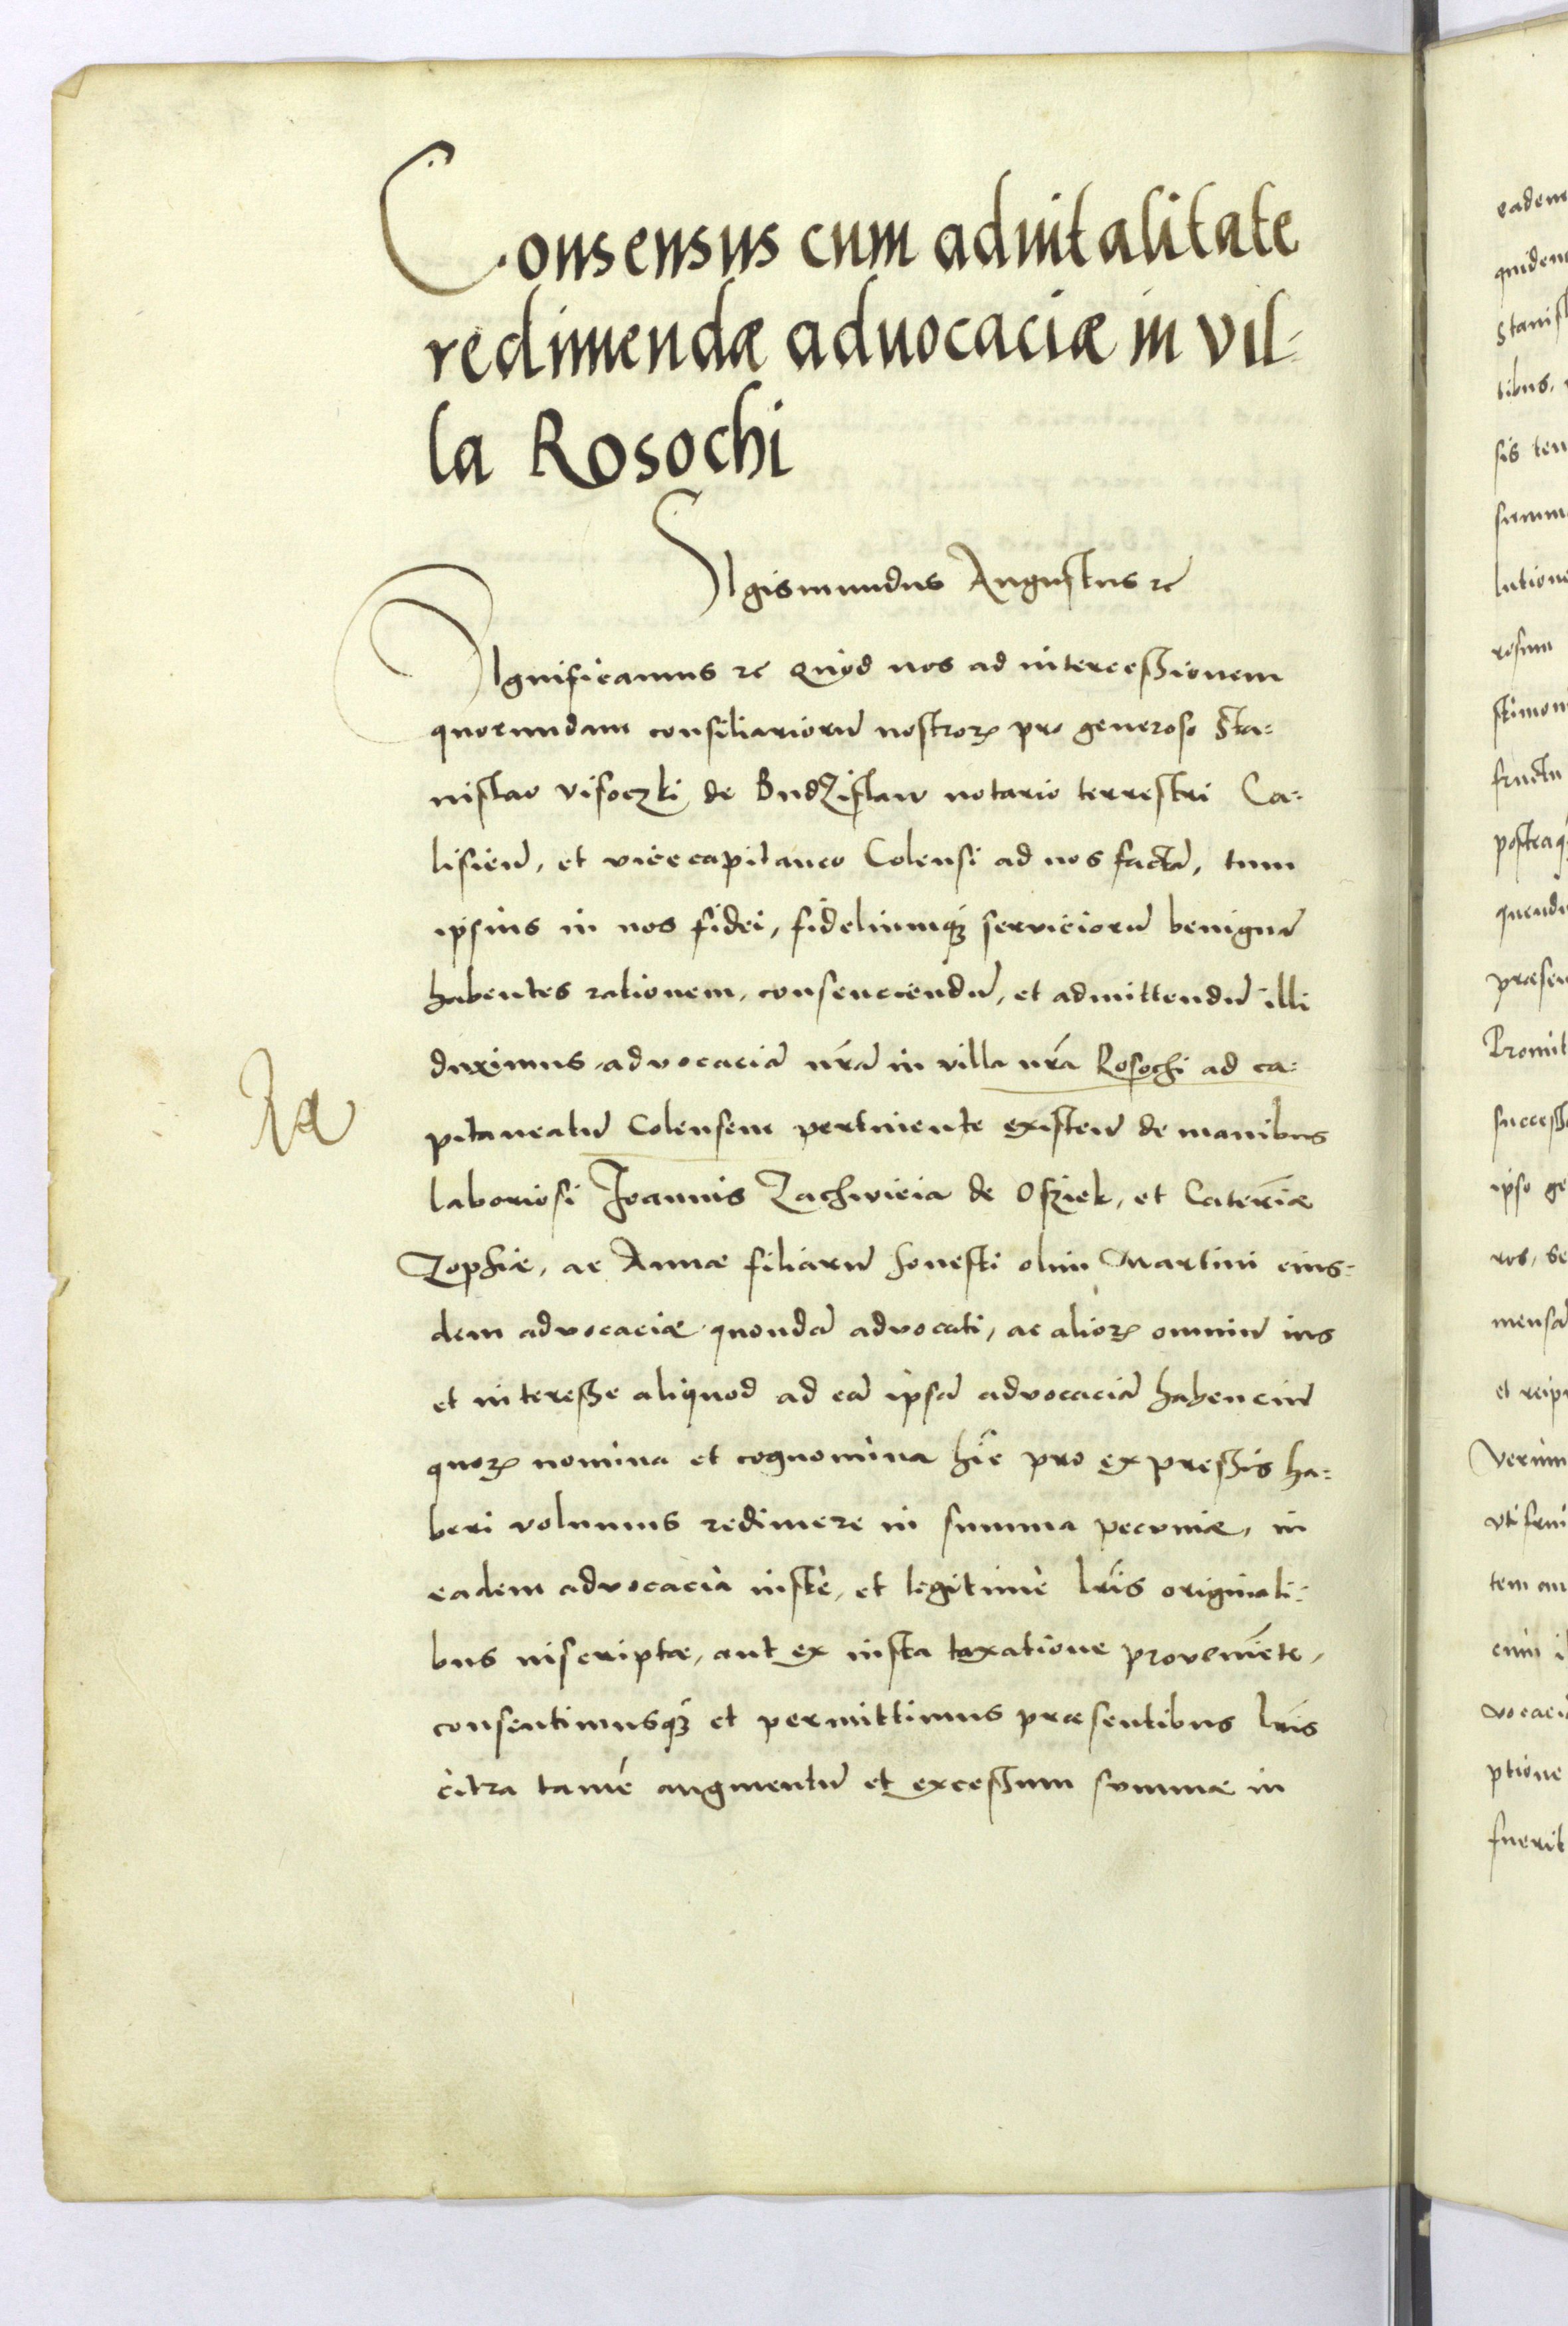 Consensus cum aduitalitate
redimendæ aduocaciæ in vil-
la Rosochi
SIgismundus Augustus zc
SIgnificamus zc Quod nos ad intercessionem
quorundam consiliarioru̅ nostroꝝ pro generoso Sta-
nislao Visoczki de Budzislaw notario terrestri Ca-
lisien̅, et vicecapitaneo Colensi ad nos factā, tum
ipsius in nos fidei, fideliumqꝫ servicioru̅ benignā
habentes rationem, consenciendū, et admittendū illi
duximus, advocaciā nr̄ā in villa nr̄a Rosochi ad ca-
pitaneatū Colensem pertinente existen̅ de manibus
laboriosi Joannis Zachwieia de Osziek, et Caterīæ
Zophiæ, ac Annæ filiarū honesti olim Martini eius-
dem advocaciæ quondā advocati, ac alioꝝ omniū ius
et interesse aliquod ad eā ipsā advocaciā habenciū
quoꝝ nomina et cognomina hīc pro expressis ha-
beri volumus redimere in summa pecuniæ, in
eadem advocacia iustè, et legitimè lr̄is originali-
bus inscriptæ, aut ex iusta taxatione provenīēte,
consentimusqꝫ et permittimus præsentibus lr̄is
citra tamē augmentū et excessum summæ in
eadem
quidem
Stanisl
tibus,
sis ten
summ
lutione
rosum
stimon
fructu
postea
quendi
præsen
Promit
success
ipso ge
ros, se
mensa
et recip
Verum
vti frui
tem au
cum i
vocaci
ptione
fuerit